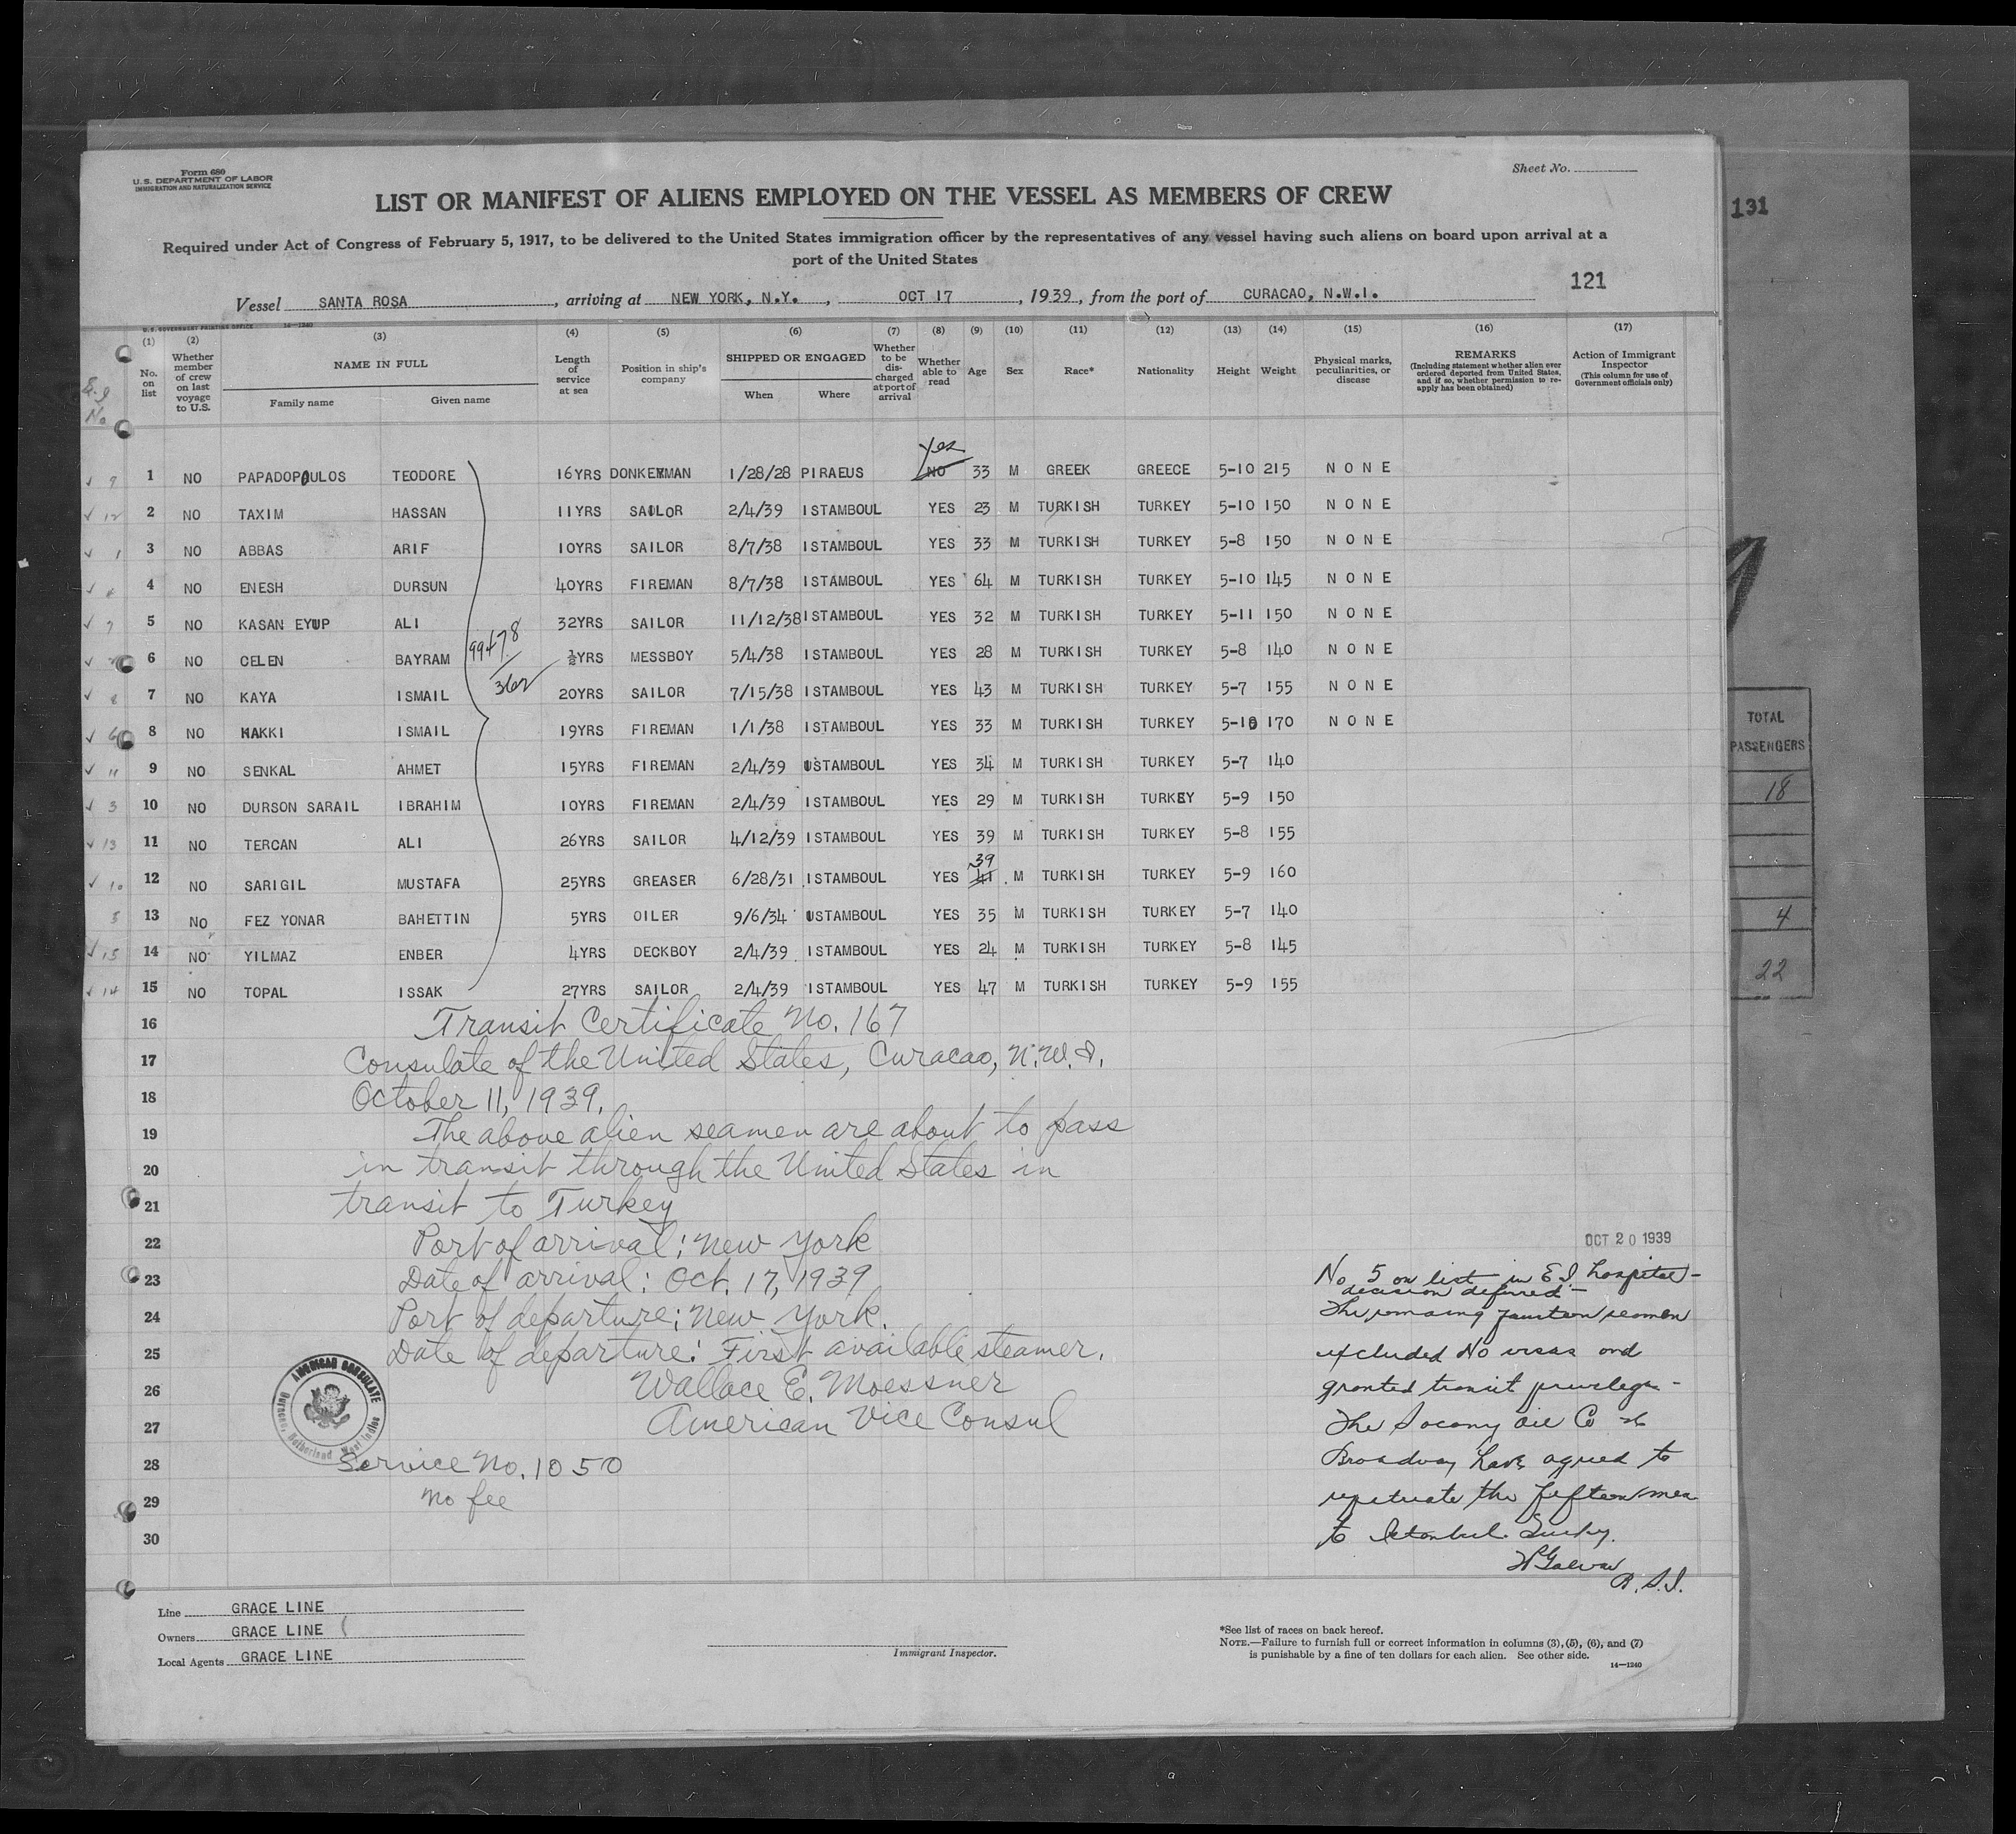 Form 680
U.S. DEPARTMENT OF LABOR
IMMIGRATION AND NATURALIZATION SERVICE
Sheet No.
LIST OR MANIFEST OF ALIENS EMPLOYED ON THE VESSEL AS MEMBERS OF CREW
131
Required under Act of Congress of February 5, 1917, to be delivered to the United States immigration officer by the representatives of any vessel having such aliens on board upon arrival at a
port of the United States
121
Vessel SANTA ROSA, arriving at NEW YORK, N.Y., OCT 17, 1939, from the port of CURACAO, N.W.I.
U.S. GOVERNMENT PRINTING OFFICE 14—1240
(1) (2) (3) (4) (5) (6) (7) (8) (9) (10) (11) (12) (13) (14) (15) (16) (17)
No. on list
Whether member of crew on last voyage to U.S.
NAME IN FULL
Family name Given name
Length of service at sea
Position in ship's company
SHIPPED OR ENGAGED
When Where
Whether to be discharged at port of arrival
Whether able to read
Age
Sex
Race*
Nationality
Height
Weight
Physical marks, peculiarities, or disease
REMARKS
(Including statement whether alien ever ordered deported from United States, and if so, whether permission to reapply has been obtained)
Action of Immigrant Inspector
(This column for use of Government officials only)
E.I. No
Yes
9 1 NO PAPADOPOULOS TEODORE 16YRS DONKEYMAN 1/28/28 PIRAEUS NO 33 M GREEK GREECE 5-10 215 NONE
12 2 NO TAXIM HASSAN 11YRS SAILOR 2/4/39 ISTAMBOUL YES 23 M TURKISH TURKEY 5-10 150 NONE
1 3 NO ABBAS ARIF 10YRS SAILOR 8/7/38 ISTAMBOUL YES 33 M TURKISH TURKEY 5-8 150 NONE
4 NO ENESH DURSUN 40YRS FIREMAN 8/7/38 ISTAMBOUL YES 64 M TURKISH TURKEY 5-10 145 NONE
7 5 NO KASAN EYUP ALI 32YRS SAILOR 11/12/38 ISTAMBOUL YES 32 M TURKISH TURKEY 5-11 150 NONE
6 NO CELEN BAYRAM ½YRS MESSBOY 5/4/38 ISTAMBOUL YES 28 M TURKISH TURKEY 5-8 140 NONE
99478/362
8 7 NO KAYA ISMAIL 20YRS SAILOR 7/15/38 ISTAMBOUL YES 43 M TURKISH TURKEY 5-7 155 NONE
6 8 NO HAKKI ISMAIL 19YRS FIREMAN 1/1/38 ISTAMBOUL YES 33 M TURKISH TURKEY 5-10 170 NONE
11 9 NO SENKAL AHMET 15YRS FIREMAN 2/4/39 USTAMBOUL YES 34 M TURKISH TURKEY 5-7 140
3 10 NO DURSON SARAIL IBRAHIM 10YRS FIREMAN 2/4/39 ISTAMBOUL YES 29 M TURKISH TURKEY 5-9 150
13 11 NO TERCAN ALI 26YRS SAILOR 4/12/39 ISTAMBOUL YES 39 M TURKISH TURKEY 5-8 155
39
10 12 NO SARIGIL MUSTAFA 25YRS GREASER 6/28/31 ISTAMBOUL YES 41 M TURKISH TURKEY 5-9 160
5 13 NO FEZ YONAR BAHETTIN 5YRS OILER 9/6/34 USTAMBOUL YES 35 M TURKISH TURKEY 5-7 140
15 14 NO YILMAZ ENBER 4YRS DECKBOY 2/4/39 ISTAMBOUL YES 24 M TURKISH TURKEY 5-8 145
14 15 NO TOPAL ISSAK 27YRS SAILOR 2/4/39 ISTAMBOUL YES 47 M TURKISH TURKEY 5-9 155
16 Transit Certificate No. 167
17 Consulate of the United States, Curacao, N.W.I.
18 October 11, 1939.
19 The above alien seamen are about to pass
20 in transit through the United States in
21 transit to Turkey
22 Port of arrival: New York
23 Date of arrival: Oct. 17, 1939
24 Port of departure: New York.
25 Date of departure: First available steamer.
26 Wallace E. Moessner
27 American Vice Consul
28 Service No. 1050
29 No fee
30
AMERICAN CONSULATE
Curacao, Netherland West Indies
OCT 20 1939
No 5 on list in E.I. hospital -
decision deferred -
The remaing fourteen seamen
excluded No visas and
granted transit privilege -
The Socony Oil Co 26
Broadway have agreed to
repatriate the fifteen men
to Istanbul. Turkey.
R.S.I.
TOTAL
PASSENGERS
18
4
22
Line GRACE LINE
Owners GRACE LINE
Local Agents GRACE LINE
Immigrant Inspector.
*See list of races on back hereof.
NOTE.—Failure to furnish full or correct information in columns (3), (5), (6), and (7)
is punishable by a fine of ten dollars for each alien. See other side.
14—1240